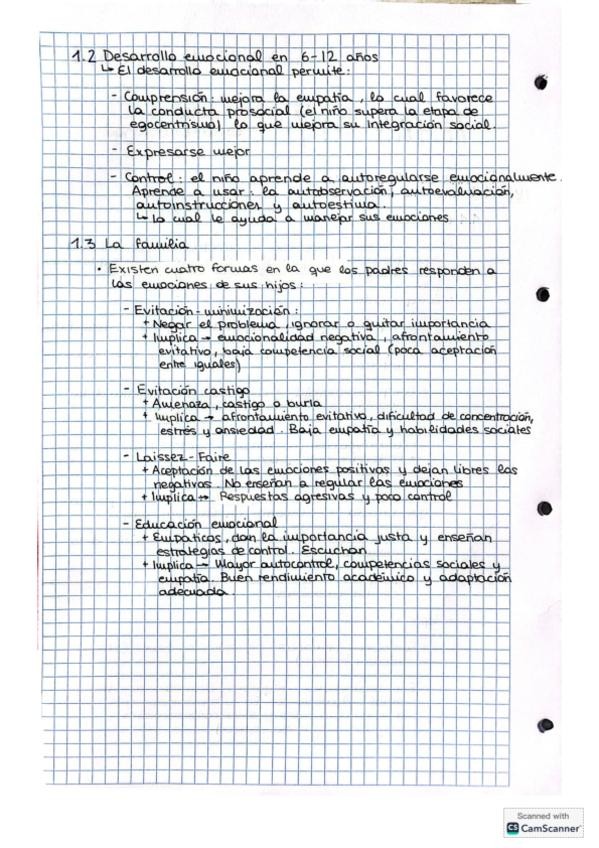 1.2 Desarrollo emocional en 6-12 años
↳ El desarrollo emocional permite:
- Comprensión: mejora la empatía, lo cual favorece
la conducta prosocial (el niño supera la etapa de
egocentrismo) lo que mejora su integración social.
- Expresarse mejor
- Control: el niño aprende a autoregularse emocionalmente.
Aprende a usar: la autobservación, autoevaluación,
autoinstrucciones y autoestima.
↳ lo cual le ayuda a manejar sus emociones
1.3 La familia
• Existen cuatro formas en la que los padres responden a
las emociones de sus hijos:
- Evitación-minimización:
+ Negar el problema, ignorar o quitar importancia
+ Implica → emocionalidad negativa, afrontamiento
evitativo, baja competencia social (poca aceptación
entre iguales)
- Evitación castigo
+ Amenaza, castigo o burla
+ Implica → afrontamiento evitativo, dificultad de concentración,
estrés y ansiedad. Baja empatía y habilidades sociales
- Laissez-Faire
+ Aceptación de las emociones positivas y dejan libres las
negativas. No enseñan a regular las emociones
+ Implica → Respuestas agresivas y poco control
- Educación emocional
+ Empáticos, dan la importancia justa y enseñan
estrategias de control. Escuchan
+ Implica → Mayor autocontrol, competencias sociales y
empatía. Buen rendimiento académico y adaptación
adecuada.
Scanned with
CS CamScanner